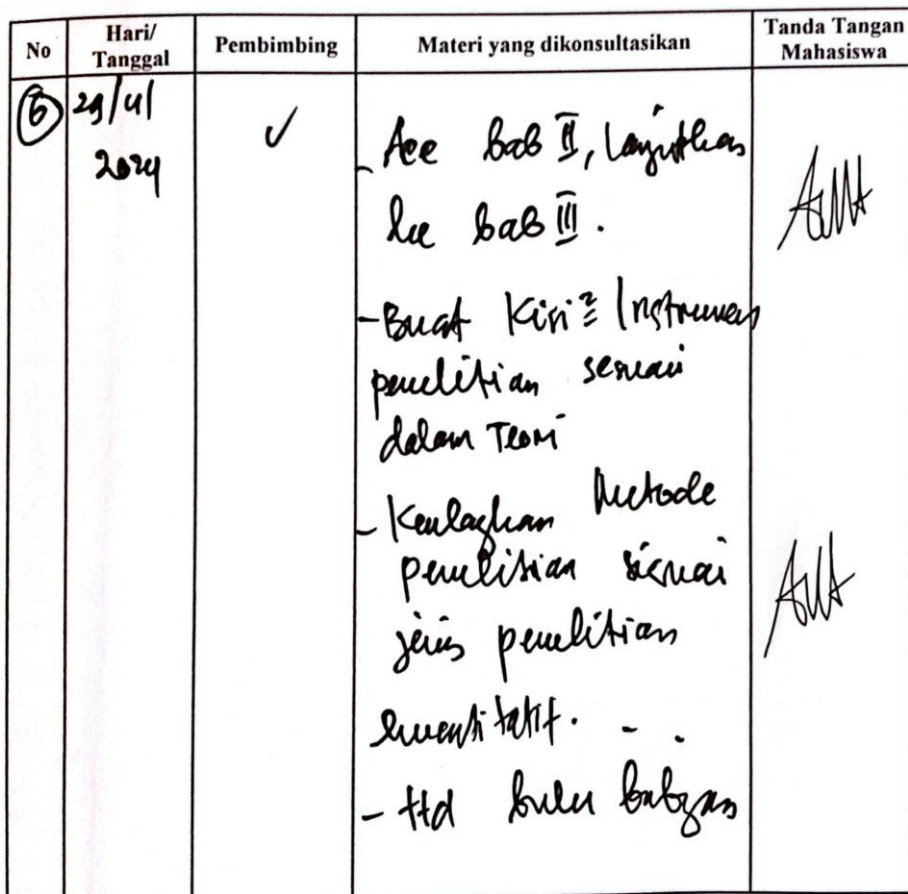 No
Hari/
Tanggal
Pembimbing
Materi yang dikonsultasikan
Tanda Tangan
Mahasiswa
6
2024
- Acc bab II, lanjutkan
ke bab III.
- Buat Kisi² Instrumen
penelitian sesuai
dalam Teori
- Metode
penelitian sesuai
jenis penelitian
kuantitatif.
- ttd buku